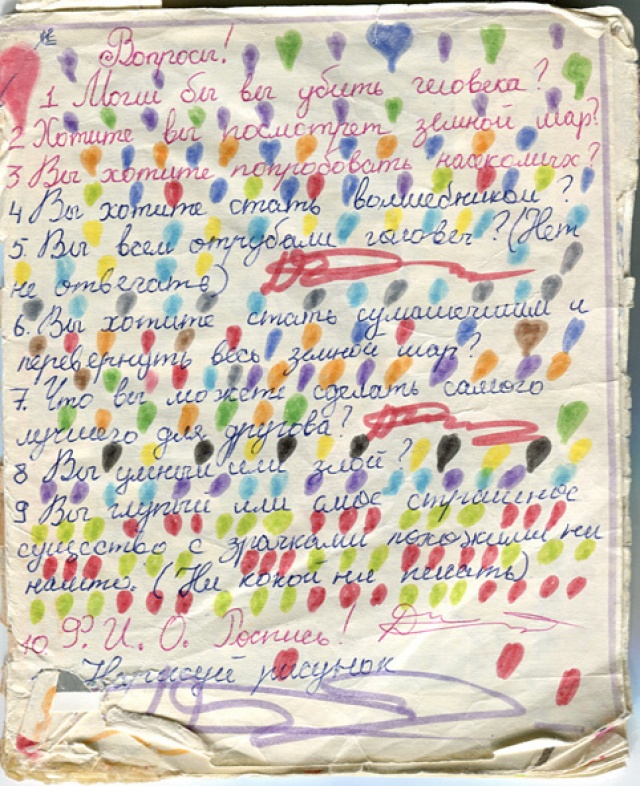 Вопросы!
1 Могли бы вы убить человека?
2 Хотите вы посмотрет земной шар?
3 Вы хотите попробовать насикомих?
4 Вы хотите стать волшебником?
5. Вы всем отрубали головы? (Нет
не отвечать)
6. Вы хотите стать сумашечшим и
перевернуть весь земной шар?
7. Что вы можете сделать самого
лучшего для другова?
8 Вы умный или злой?
9 Вы глупый или самое страшное
существо с зрачками похожими на
(Ни какой не писать)
10. Ф. И. О. Роспись!
Нарисуй рисунок